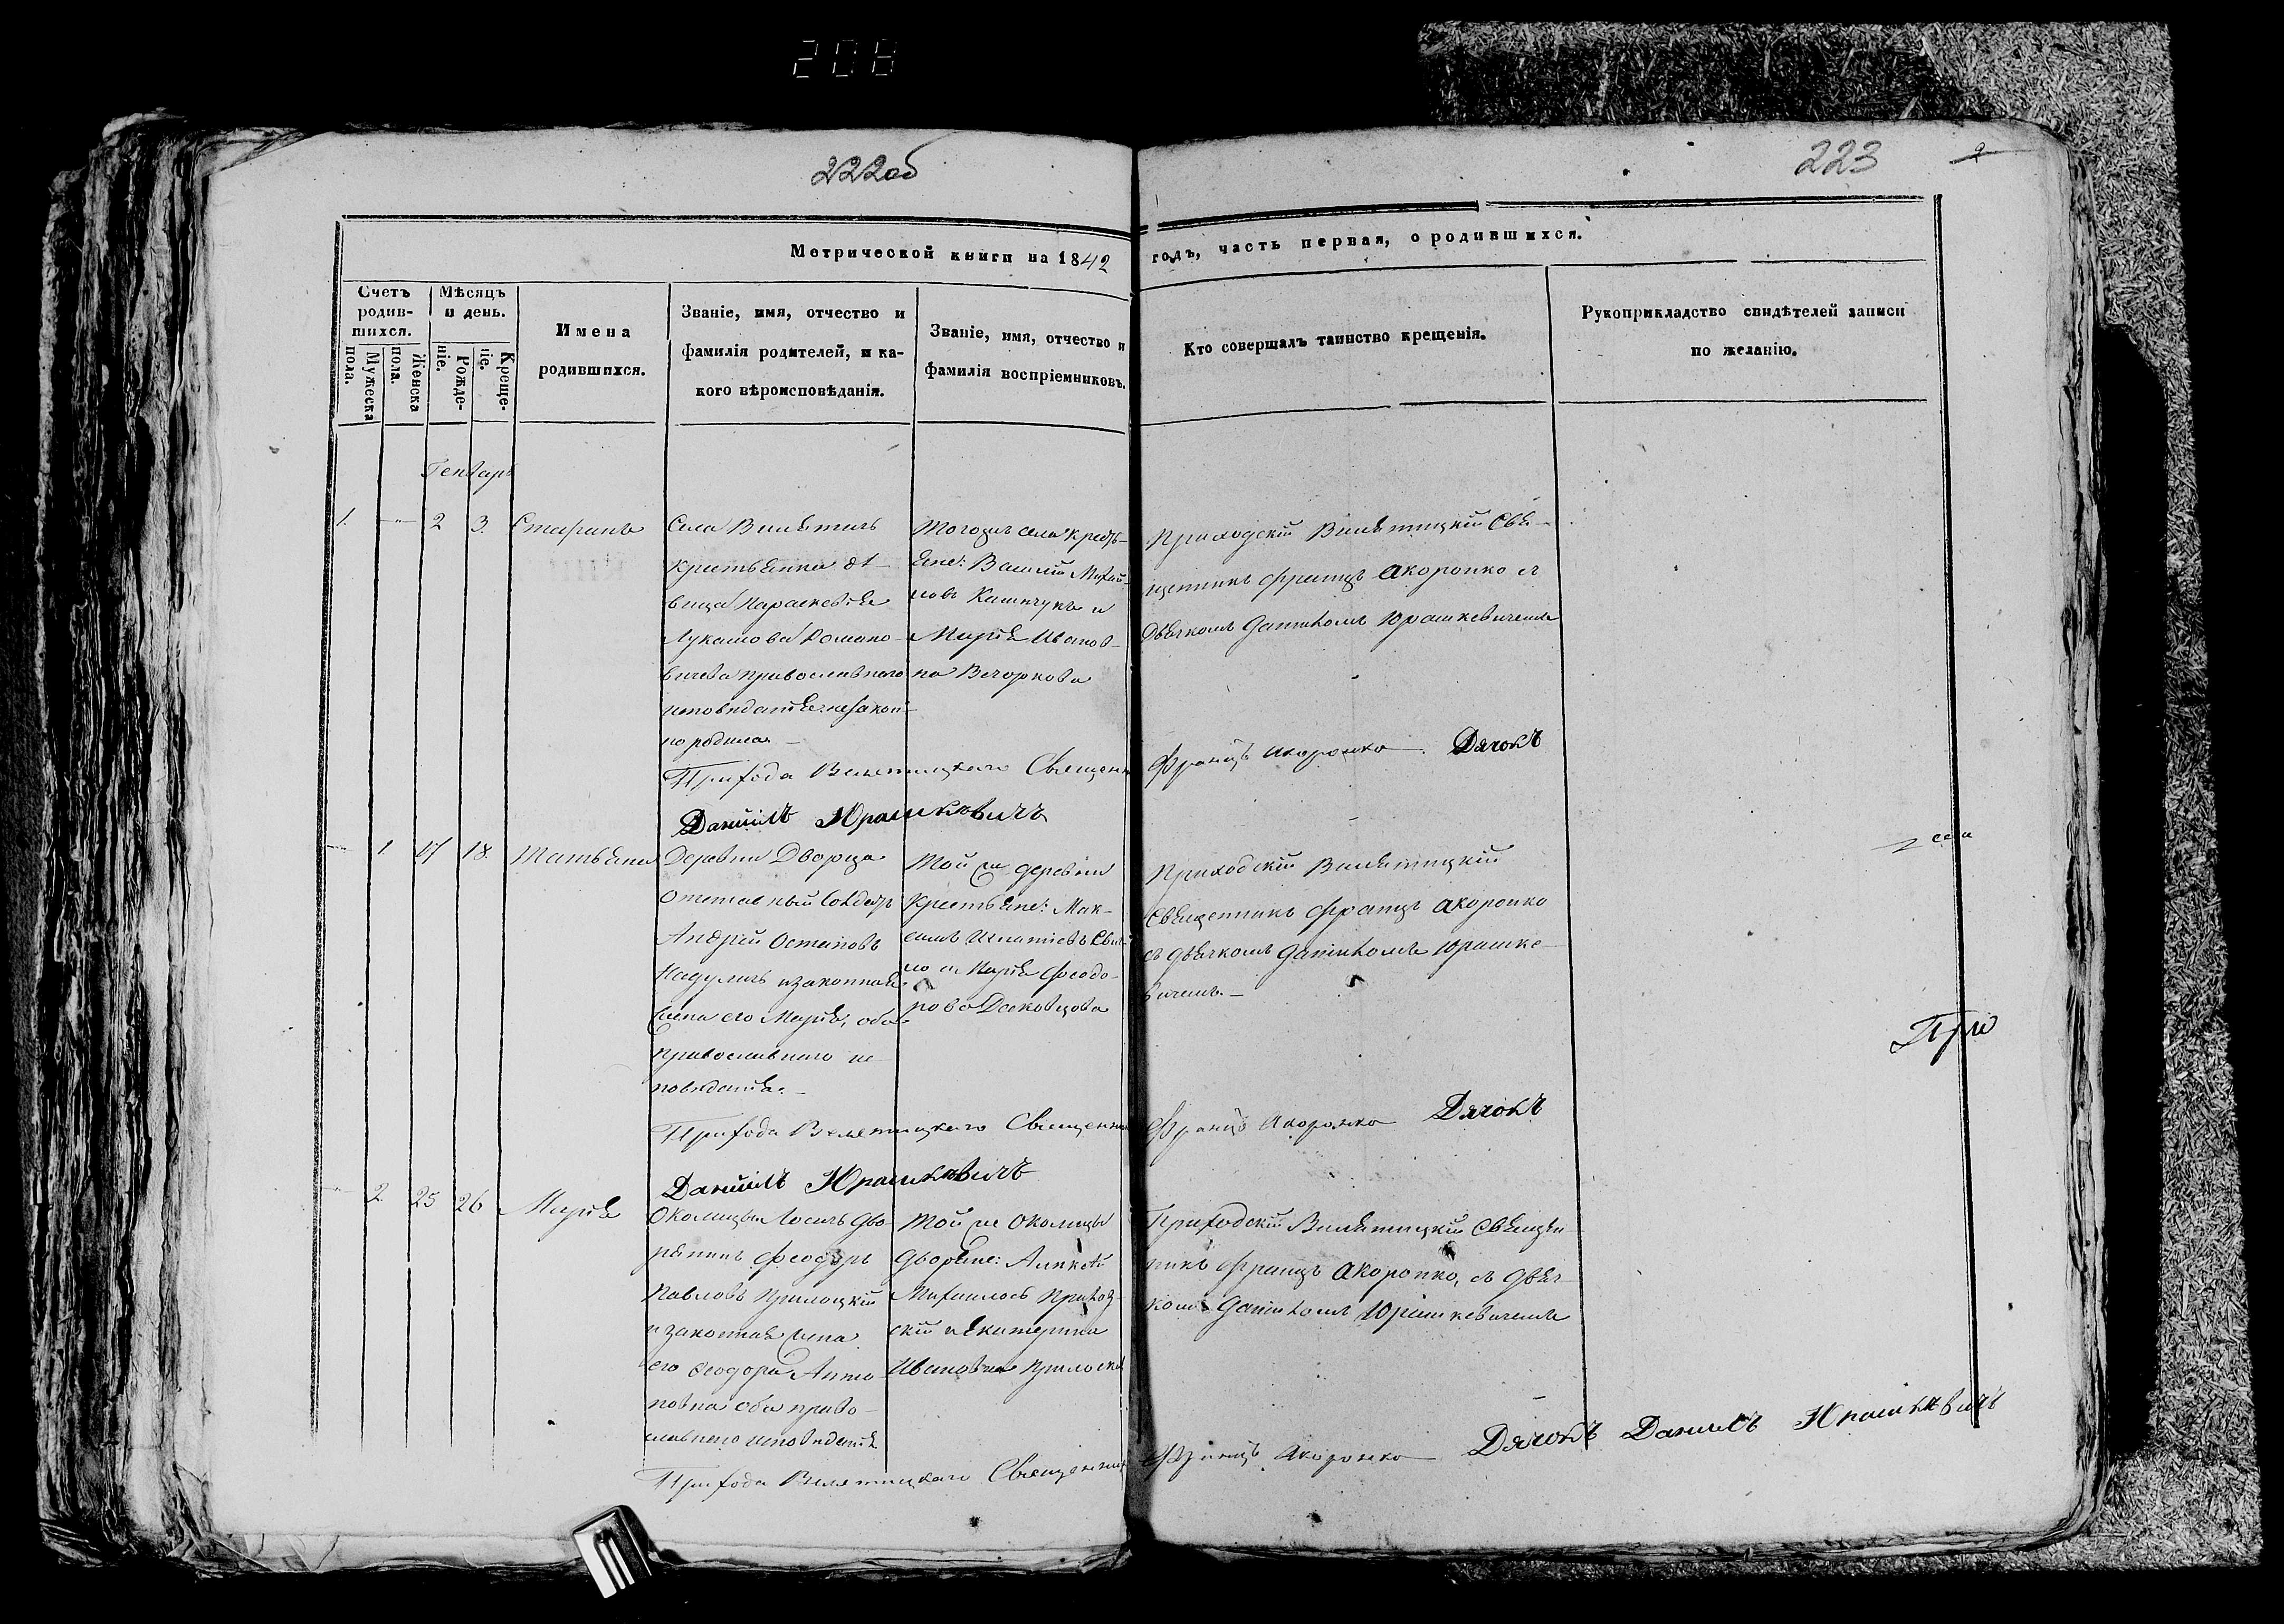 208
222об
223
2
Метрической книги на 1842 годъ, часть первая, о родившихся.
Счетъ родив-
шихся.
Мужеска пола.
Женска пола.
Мѣсяцъ и день.
Рожде-
ніе.
Креще-
ніе.
Имена
родившихся.
Званіе, имя, отчество и
фамилія родителей, и ка-
кого вѣроисповѣданія.
Званіе, имя, отчество и
фамилія воспріемниковъ.
Кто совершалъ таинство крещенія.
Рукоприкладство свидѣтелей записи
по желанію.
Генварь
1. 2 3. Стефанъ
Села
крестьянка
вица Параскевія
Лукашова Домано-
вичева православнаго
исповѣданія незакон-
но родила
Тогожъ села кресть-
яне: Василій Михай-
ловъ и
Марія Иванов-
на
Приходскій Велятицкій Свя-
щенникъ Францъ Акоронко съ
дьячкомъ Даніиломъ Юрашкевичемъ
Прихода Велятицкаго Священни Францъ Акоронко Дячокъ
Даніилъ Юрашкевичъ
1. 17 18. Татьяна
Деревни Дворца
отставный Солдатъ
Андрей Остаповъ
изаконная
жена его Марія, оба
православнаго ис-
повѣданія.
Той же деревни
Крестьяне: Мак-
симъ Игнатіевъ
и Марія Феодо-
рова
Приходскій Велятицкій
Священникъ Францъ Акоронко
съ дьячкомъ Даніиломъ Юрашке-
вичемъ.
При
Прихода Велятицкаго Священни Францъ Акоронко Дячокъ
Даніилъ Юрашкевичъ
2. 25 26 Марія
Околицы Лосичь дво-
рянинъ Феодоръ
Павловъ
изаконная жена
его Феодора Анто-
новна оба право-
славнаго исповѣданія
Той же околицы
дворяне: Алексѣй
Михайловъ
скій и Екатерина
Ивановна
Приходскій Велятицкій Священ-
никъ Францъ Акоронко, съ дьяч-
комъ Даніиломъ Юрашкевичемъ
Прихода Велятицкаго Священник Францъ Акоронко Дячокъ Даніилъ Юрашкевичъ